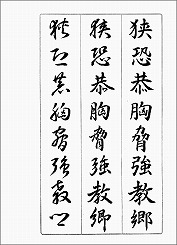 狭恐恭胸脅強教郷
狭恐恭胸脅強教郷
狭恐恭胸脅強教郷